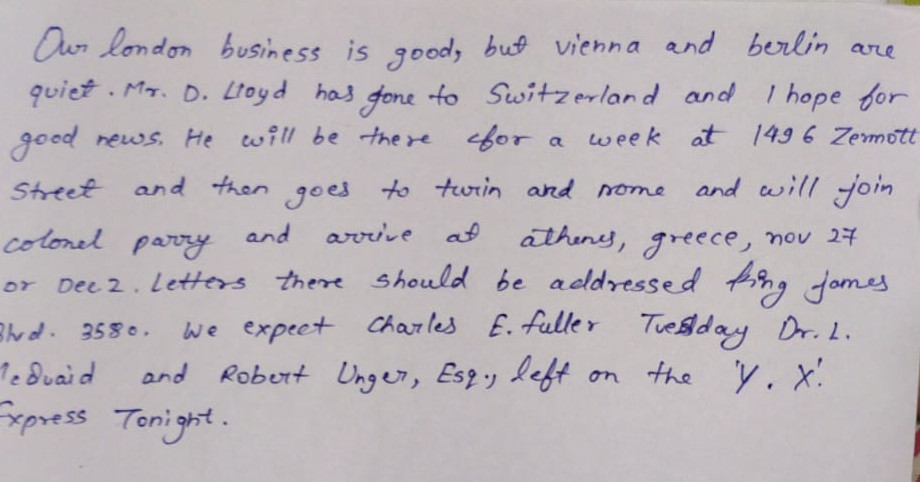 Our london business is good, but vienna and berlin are
quiet. Mr. D. Lloyd has gone to Switzerland and I hope for
good news. He will be there for a week at 1496 Zermott
Street and then goes to turin and rome and will join
colonel parry and arrive at athens, greece, nov 27
or Dec 2. Letters there should be addressed king james
Blvd. 3580. We expect Charles E. fuller Tuesday Dr. L.
McQuaid and Robert Unger, Esq., left on the 'Y. X'.
Express Tonight.